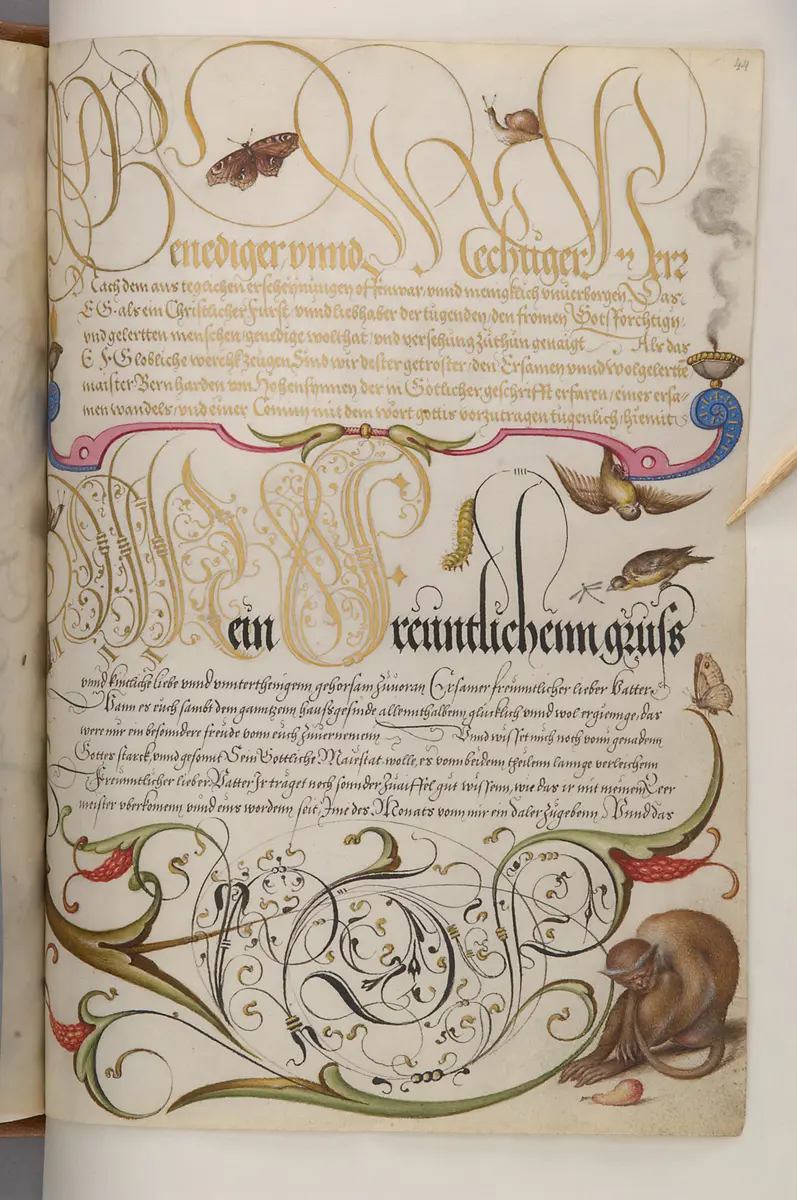 44
Genediger vnnd Mechtiger Herr
Nach dem aus teglichen erscheynungen offenwar, vnnd menigklich vnuerborgen Das
E G als ein Christlicher Furst, vnnd liebhaber der tugenden, den fromen Gotsforchtign,
vnd gelertten menschen, genedige wolthat, vnd versehung zuthun genaigt Als das
E F G lobliche werckh zeugen Sind wir dester getroster, den Ersamen vnnd wolgelertte
maister Bernharden von Hohensynnen der in Götlicher geschrifft erfaren, eines ersa-
men wandels, vnd einer Comun mit dem wort gottis vorzutragen tugenlich, hiemit
Mein freuntlichenn gruss
vnnd kintliche liebe vnnd vnnterthenigenn gehorsam zuuoran Ersamer freunntlicher lieber Vatter
Wann es euch sambt dem ganntzenn haussgesinde allennthalbenn glücklich vnnd wol ergiennge, das
were mir ein besonndere freude vonn euch zuuernemenn Vnnd wisset mich noch vonn genadenn
Gottes starck, vnnd gesonnt Sein Göttliche Maiestat wolle, es vonn beidenn theilenn lannge verleichenn
Freunntlicher lieber Vatter Ir traget noch sonnder Zuaiffel gut wissenn, wie das ir mit meinen Leer
meister vberkomenn vnnd eins wordenn seit, Ime des Monats vonn mir ein daler zugebenn Vnnd das